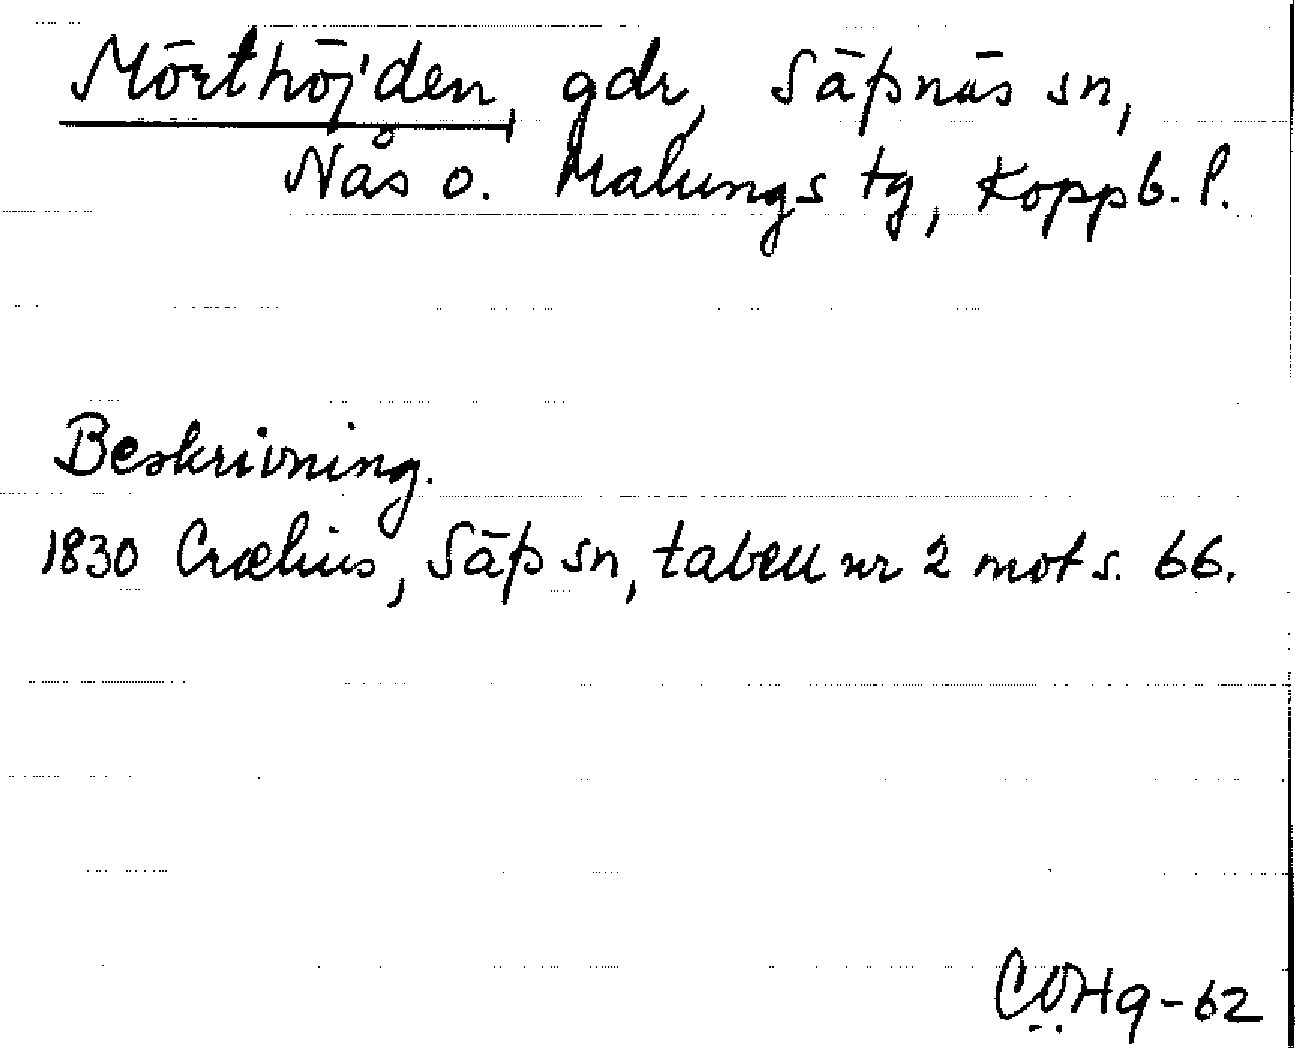 Mörthöjden, gdr, Säfsnäs sn,
Nås o. Malungs tg, Koppb. l.
Beskrivning.
1830 Crælius, Säfs sn, tabell nr 2 mot s. 66.
CÖHg-62